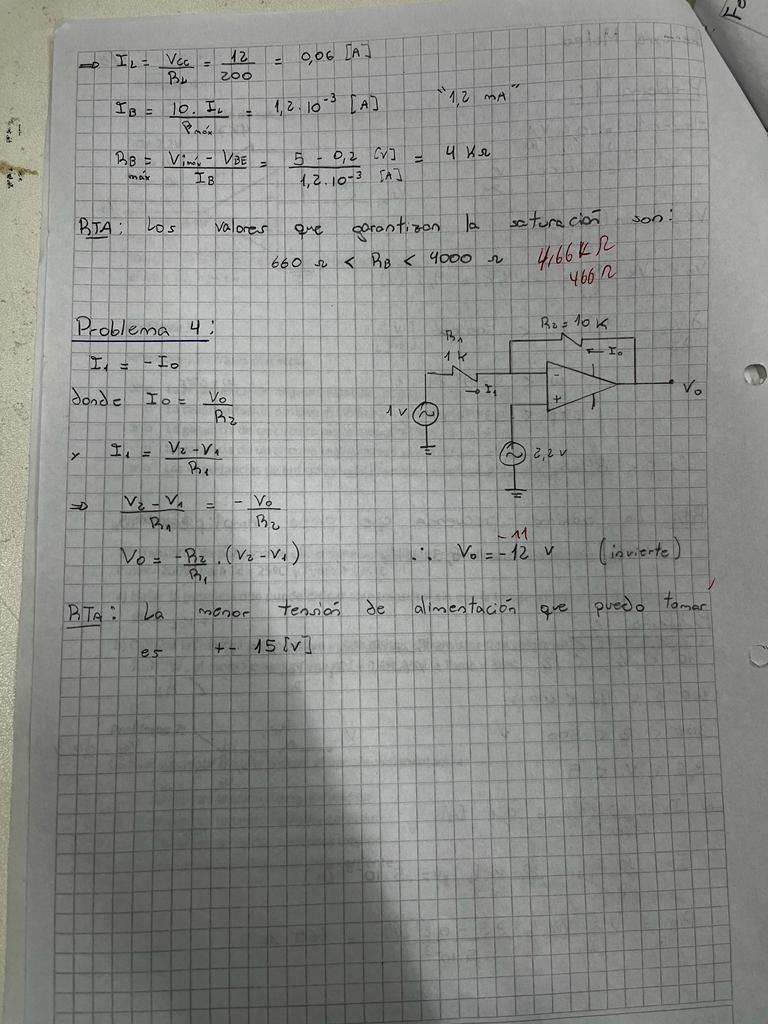 ⇒ IL = Vcc / RL = 12 / 200 = 0,06 [A]
IB = 10. IL / βmáx = 1,2.10⁻³ [A] "1,2 mA"
RB máx = Vimáx - VBE / IB = 5 - 0,2 [V] / 1,2.10⁻³ [A] = 4 KΩ
RTA: Los valores que garantizan la saturación son:
660 Ω < RB < 4000 Ω 4,66KΩ
466Ω
Problema 4:
I1 = - Io
donde Io = Vo / R2
y I1 = V2 - V1 / R1
⇒ V2 - V1 / R1 = - Vo / R2
Vo = -R2 / R1 . (V2 - V1) ∴ Vo = -12 V (invierte)
-11
R1
1K
R2 = 10 K
← Io
→ I1
-
+
Vo
1 V
2,2 V
RTA: La menor tensión de alimentación que puedo tomar
es +- 15 [V]